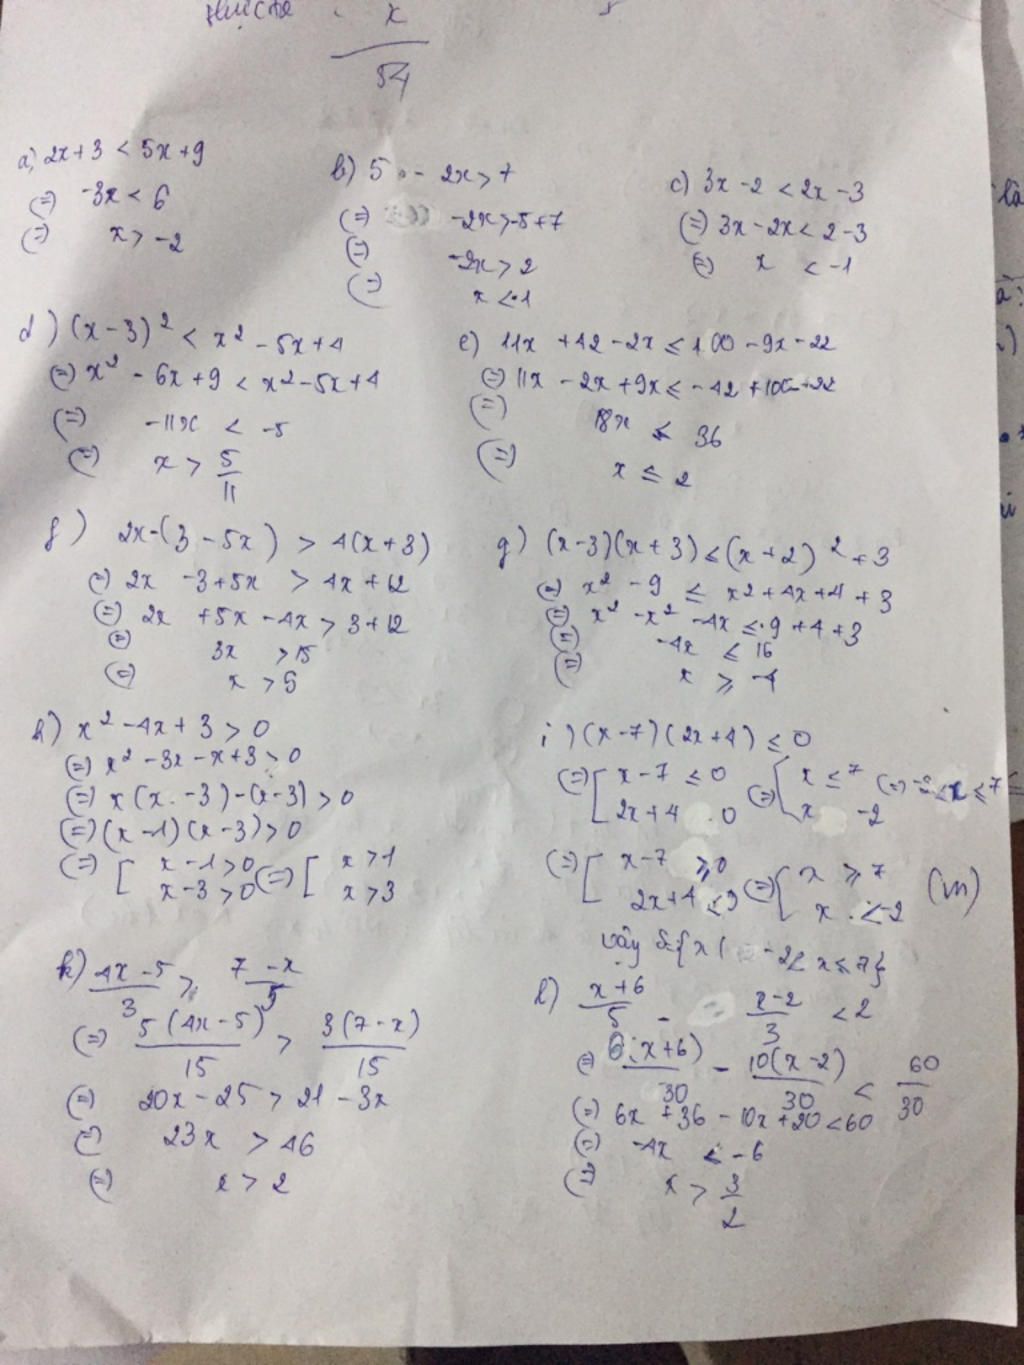 x
54
a) 2x+3 < 5x+9
(=) -3x < 6
(=) x > -2
b) 5 - 2x > 7
(=) -2x > -5+7
(=) -2x > 2
(=) x < -1
c) 3x - 2 < 2x - 3
(=) 3x - 2x < 2 - 3
(=) x < -1
d) (x-3)² < x² - 5x+4
(=) x² - 6x+9 < x² - 5x+4
(=) -11x < -5
(=) x > 5/11
e) 11x + 42 - 2x ≤ 100 - 9x - 22
(=) 11x - 2x + 9x ≤ -42 + 100 - 22
(=) 18x ≤ 36
(=) x ≤ 2
f) 2x-(3 - 5x) > 4(x+3)
(=) 2x - 3+5x > 4x+12
(=) 2x + 5x - 4x > 3+12
(=) 3x > 15
(=) x > 5
g) (x-3)(x+3) ≤ (x+2)² + 3
(=) x² - 9 ≤ x² + 4x+4 + 3
(=) x² - x² - 4x ≤ 9 + 4 + 3
(=) -4x ≤ 16
(=) x ≥ -4
h) x² - 4x + 3 > 0
(=) x² - 3x - x+3 > 0
(=) x(x - 3) - (x-3) > 0
(=) (x-1)(x-3) > 0
(=) [ x-1 > 0 (=) [ x > 1
x-3 > 0 x > 3
i) (x-7)(2x+4) ≤ 0
(=) [ x-7 ≤ 0 (=) { x ≤ 7 (=) -2 ≤ x ≤ 7
2x+4 0 x -2
(=) [ x-7 ≥ 0 (=) { x ≥ 7 (vn)
2x+4 ≤ 0 x < -2
vậy S={x | -2 ≤ x ≤ 7}
k) 4x-5/3 > 7-x/5
(=) 5(4x-5)/15 > 3(7-x)/15
(=) 20x - 25 > 21 - 3x
(=) 23x > 46
(=) x > 2
l) x+6/5 - x-2/3 < 2
(=) 6(x+6)/30 - 10(x-2)/30 < 60/30
(=) 6x + 36 - 10x + 20 < 60
(=) -4x < -6
(=) x > 3/2